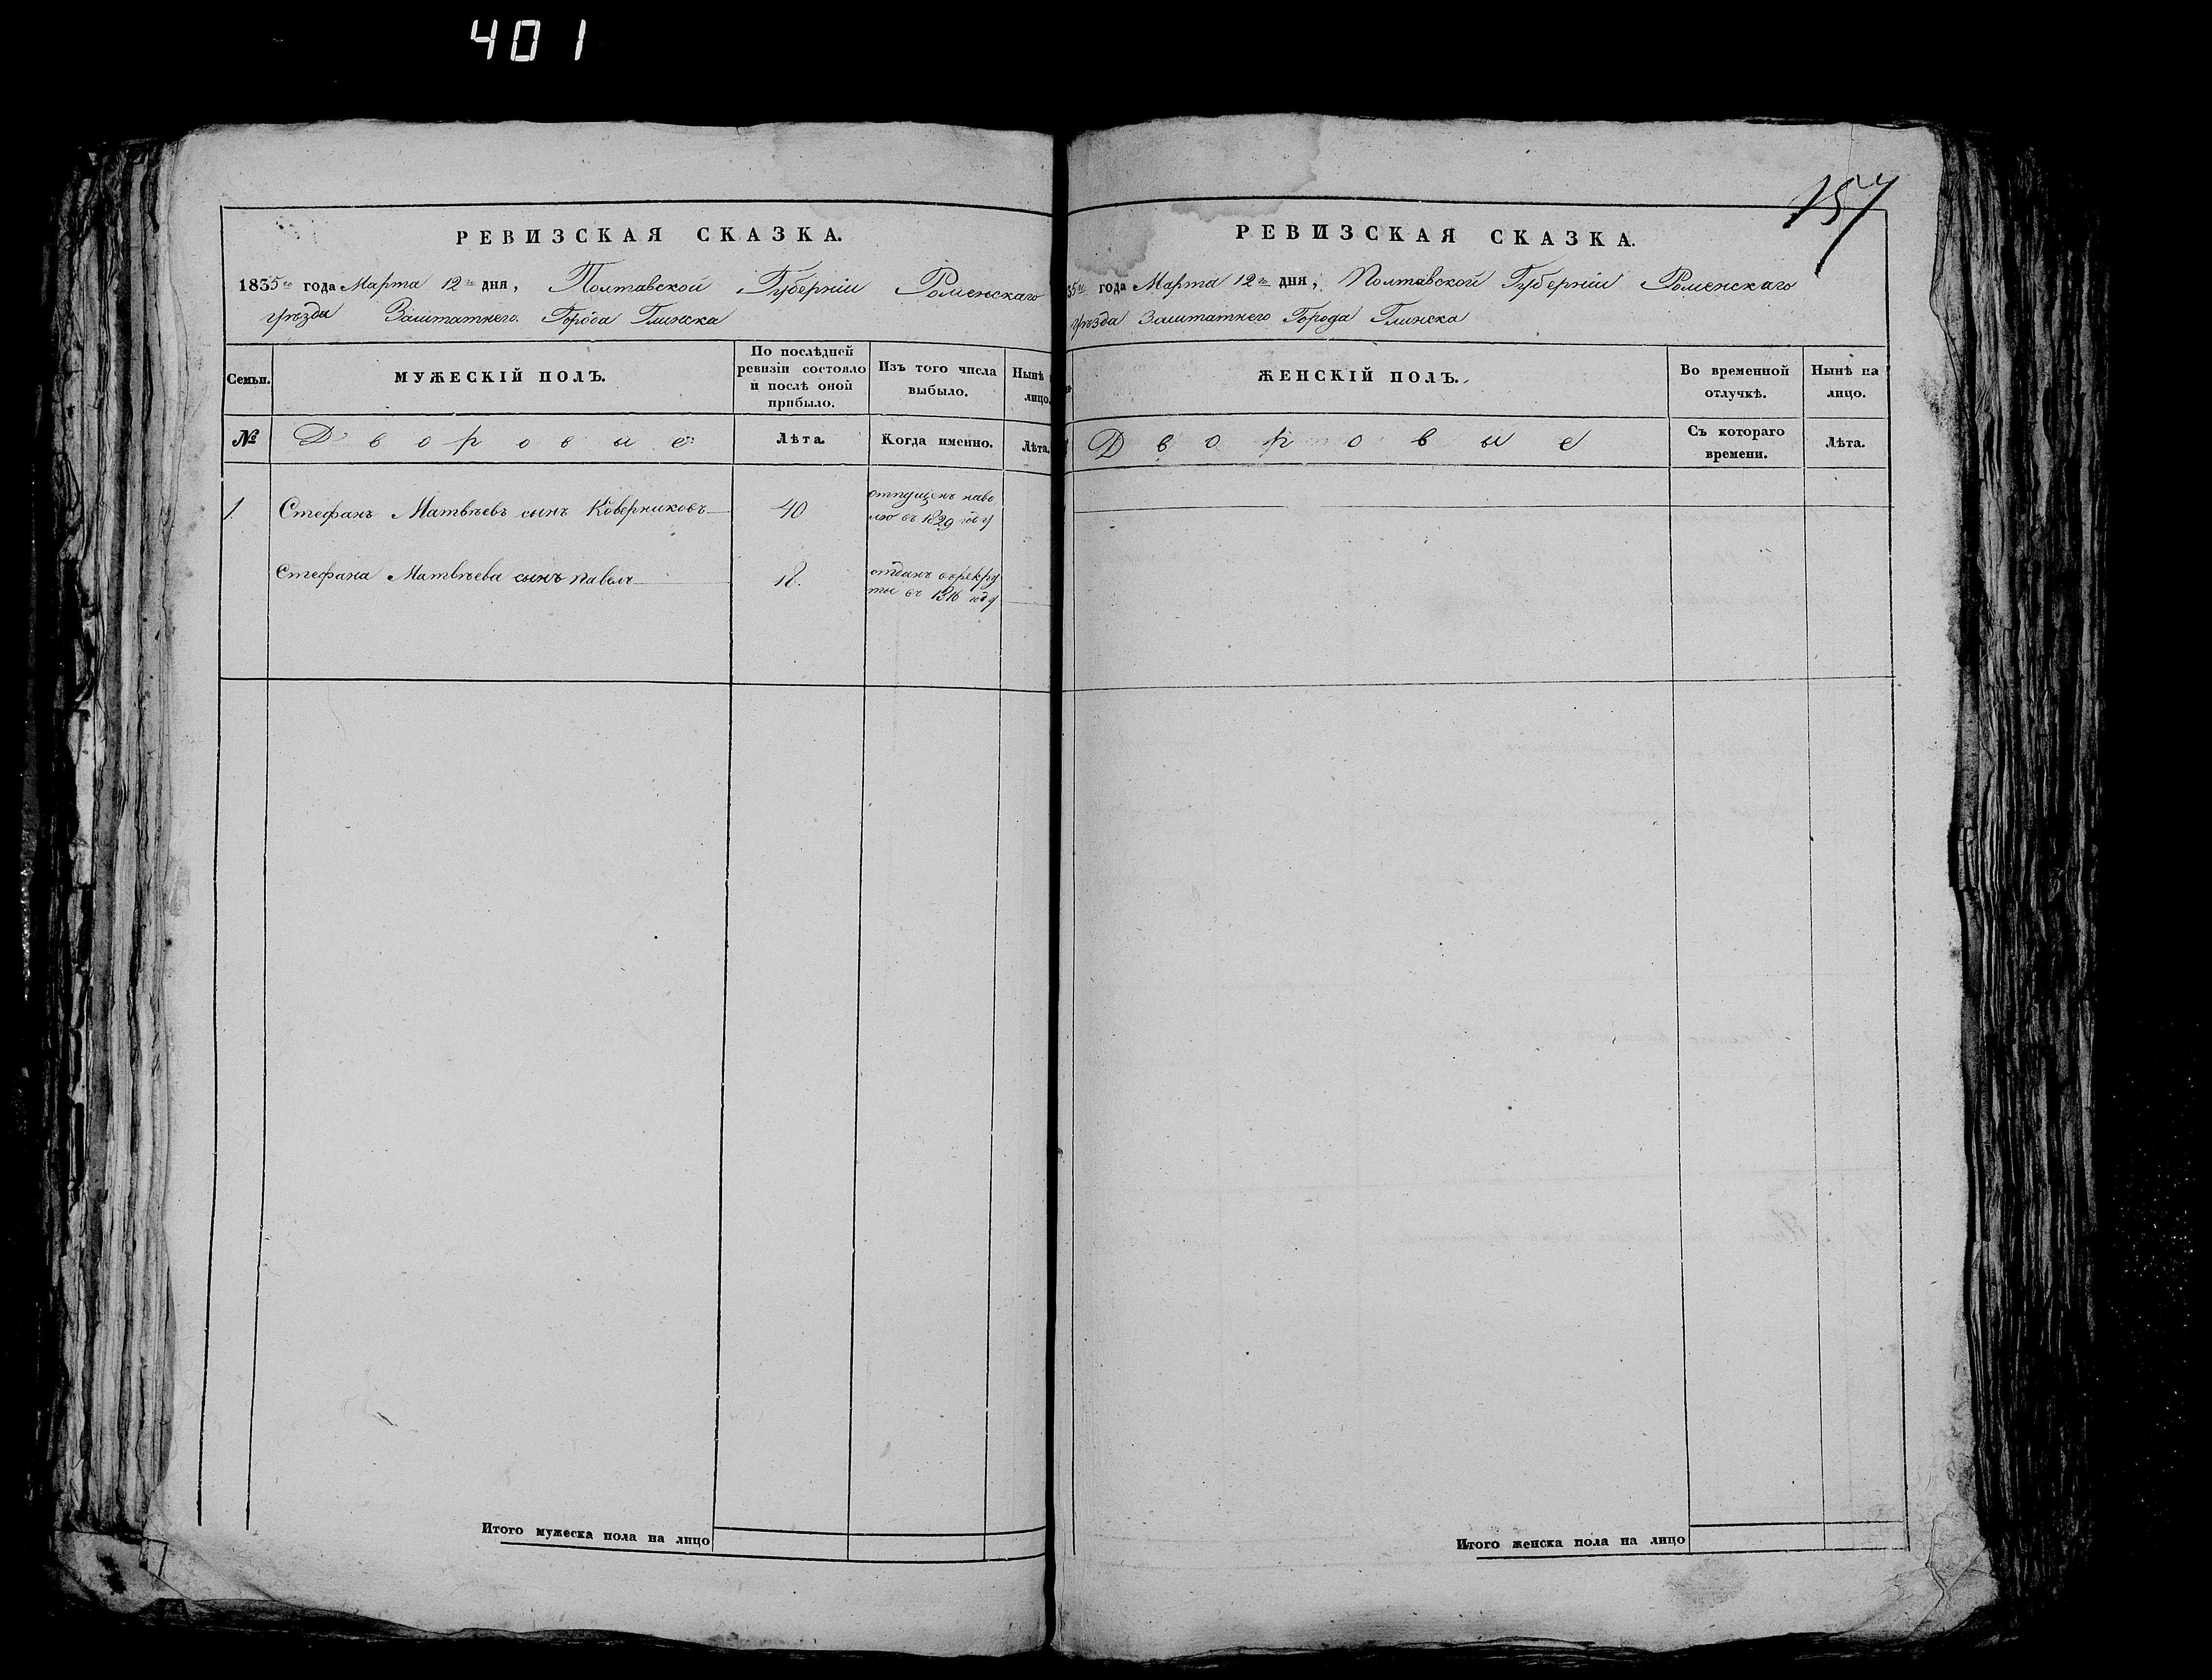 401
157
РЕВИЗСКАЯ СКАЗКА.
1835го года Марта 12го дня, Полтавской Губерніи Роменскаго
уѣзда Заштатнего Города Глинска
Семьи.
МУЖЕСКІЙ ПОЛЪ.
По послѣдней ревизіи состояло и послѣ оной прибыло.
Изъ того числа выбыло.
Нынѣ
лицо.
№
Дворовые
Лѣта.
Когда именно.
Лѣта.
1. Стефанъ Матвѣевъ сынъ Коверниковъ 40
отпущенъ наво
лю въ 1829 году
Стефана Матвѣева сынъ Павелъ 18.
отданъ врекру
ты въ 1816 году
Итого мужеска пола на лицо
РЕВИЗСКАЯ СКАЗКА.
35го года Марта 12го дня, Полтавской Губерніи Роменскаго
уѣзда Заштатнего Города Глинска
ЖЕНСКІЙ ПОЛЪ.
Во временной отлучкѣ.
Нынѣ на лицо.
Дворовые
Съ котораго времени.
Лѣта.
Итого женска пола на лицо